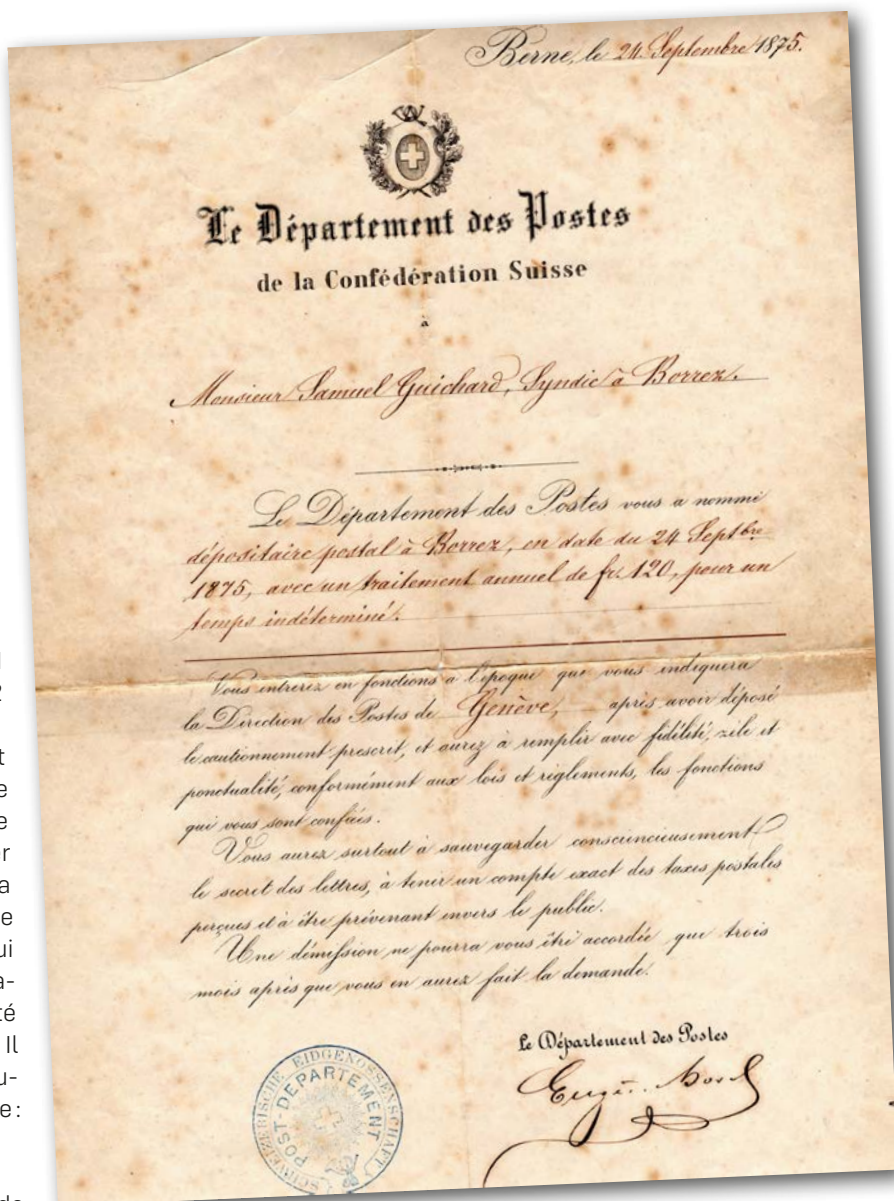 Berne, le 24. Septembre 1875.
Le Département des Postes
de la Confédération Suisse
à
Monsieur Samuel Guichard, Syndic à Borrex.
Le Département des Postes vous a nommé
dépositaire postal à Borrex, en date du 24 Septbre
1875, avec un traitement annuel de fr. 120, pour un
temps indéterminé.
Vous entrerez en fonctions à l'époque que vous indiquera
la Direction des Postes de Genève, après avoir déposé
le cautionnement prescrit, et aurez à remplir avec fidélité, zèle et
ponctualité, conformément aux lois et règlements, les fonctions
qui vous sont confiées.
Vous aurez surtout à sauvegarder consciencieusement
le secret des lettres, à tenir un compte exact des taxes postales
perçues et à être prévenant envers le public.
Une démission ne pourra vous être accordée que trois
mois après que vous en aurez fait la demande.
Le Département des Postes
SCHWEIZERISCHE EIDGENOSSENSCHAFT
POST-DEPARTEMENT
t
e
e
er
a
e
ui
a-
té
Il
u-
e :
de